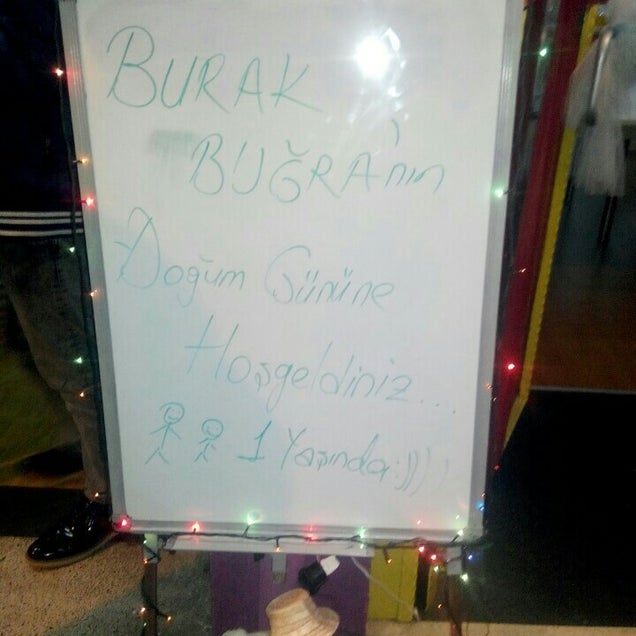 BURAK
BUĞRA'nın
Doğum Gününe
Hoşgeldiniz...
1 Yaşında:))))